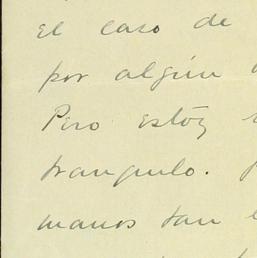 el caso de
por algún
Pero estoy
tranquilo.
manos tan